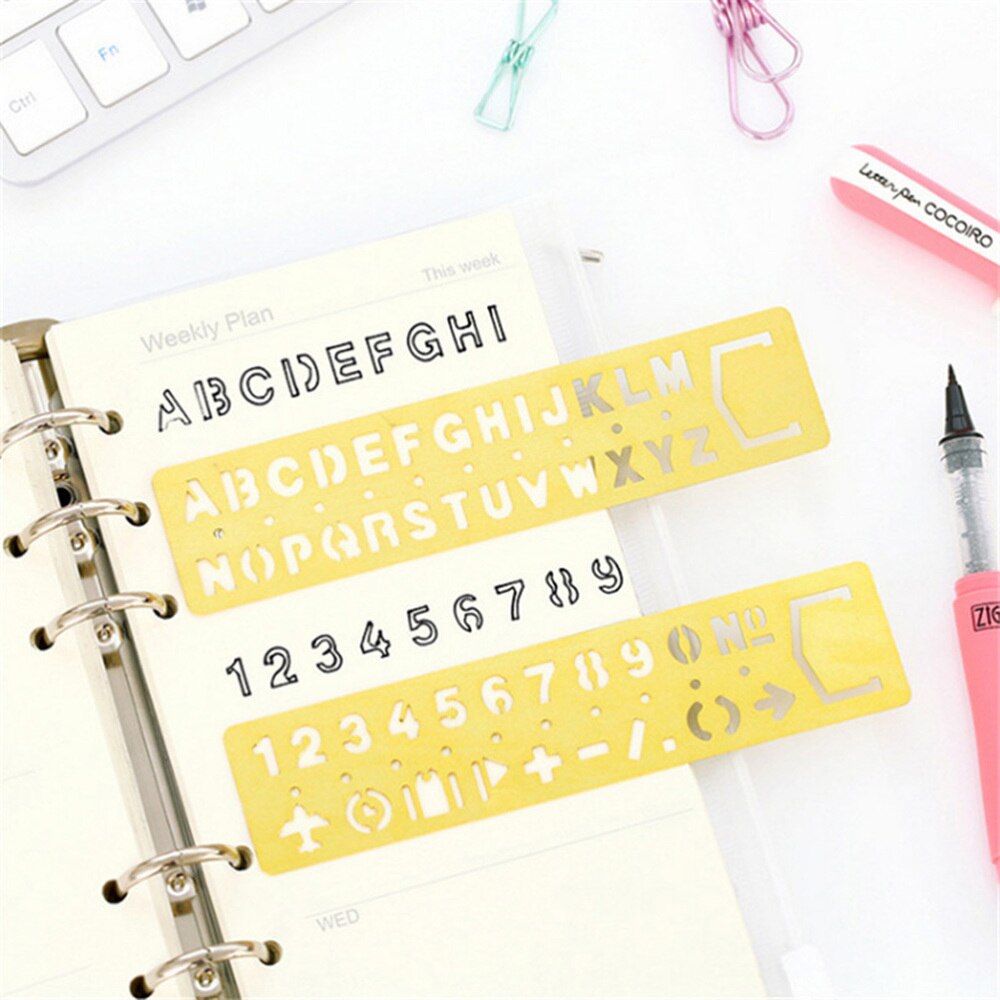 Ctrl
Fn
Letter pen COCOIRO
This week
Weekly Plan
ABCDEFGHI
ABCDEFGHIJKLM
NOPQRSTUVWXYZ
123456789
1234567890 Nº
+ - / . ( ) →
ZIG
WED